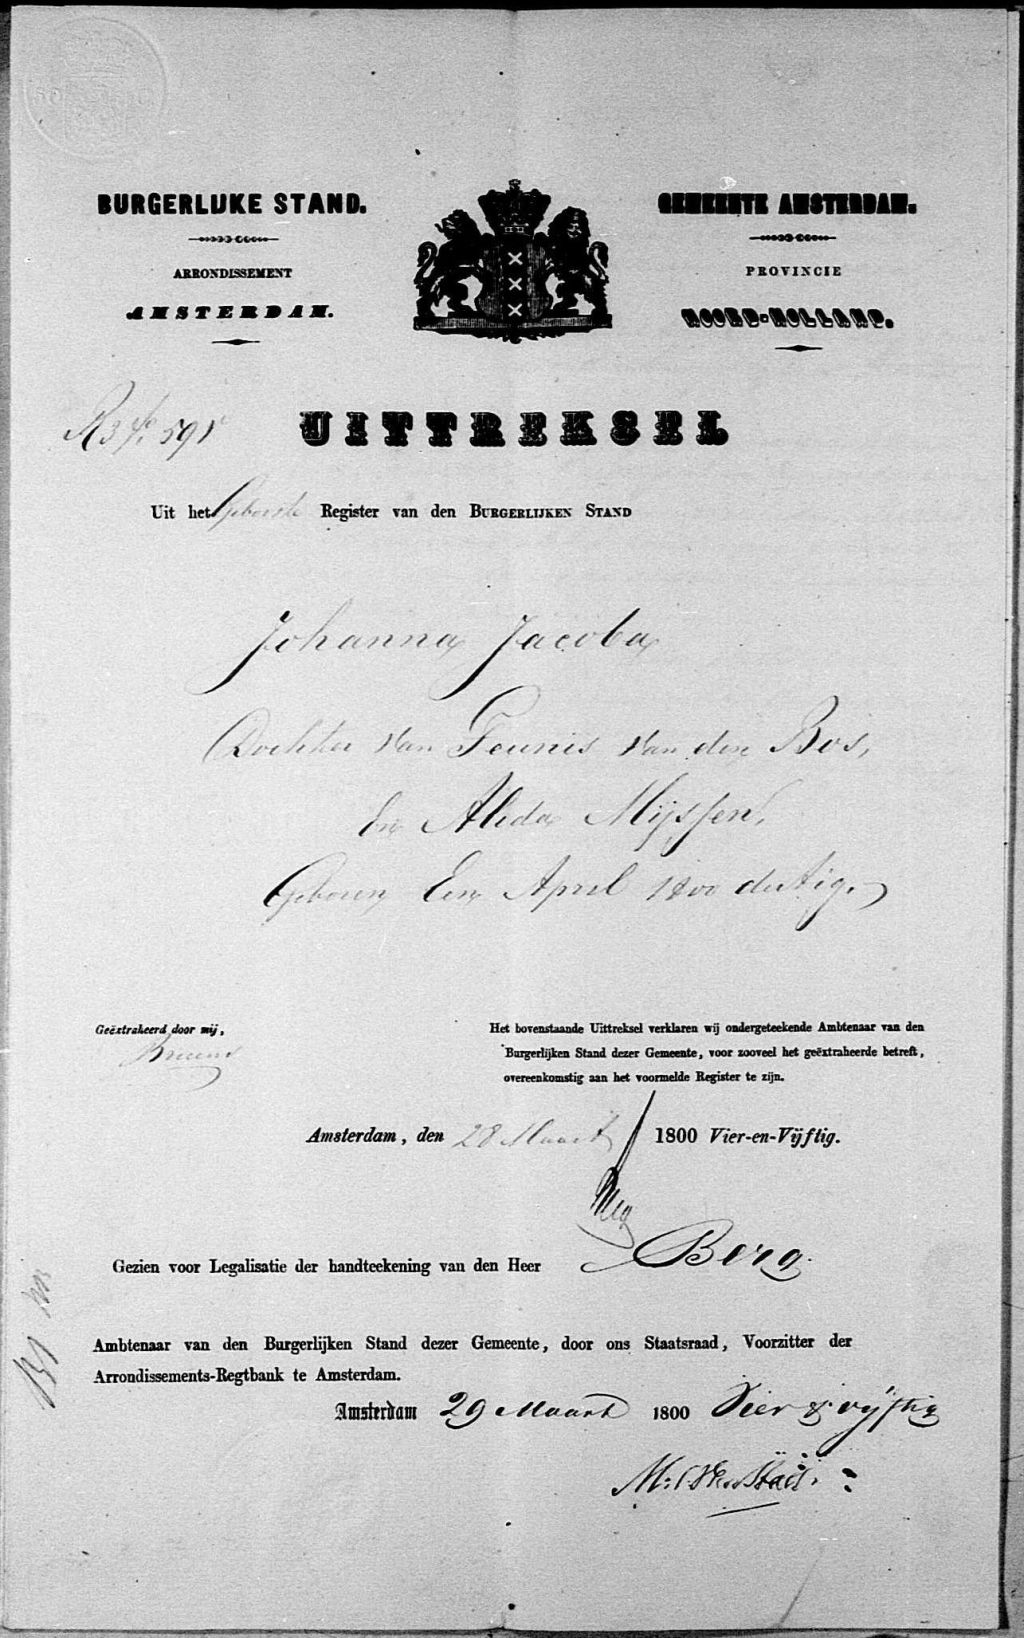 BURGERLIJKE STAND.
ARRONDISSEMENT
AMSTERDAM.
GEMEENTE AMSTERDAM.
PROVINCIE
NOORD-HOLLAND.
R3 fo. 591
UITTREKSEL
Uit het Geboorte Register van den BURGERLIJKEN STAND
Johanna Jacoba
Dochter van Teunis van den Bos,
En Alida Mijssen,
Geboren Een April 1800 dertig.
Geëxtraheerd door mij,
Het bovenstaande Uittreksel verklaren wij ondergeteekende Ambtenaar van den
Burgerlijken Stand dezer Gemeente, voor zooveel het geëxtraheerde betreft,
overeenkomstig aan het voormelde Register te zijn.
Amsterdam, den 28 Maart 1800 Vier-en-Vijftig.
Gezien voor Legalisatie der handteekening van den Heer Berg.
Ambtenaar van den Burgerlijken Stand dezer Gemeente, door ons Staatsraad, Voorzitter der
Arrondissements-Regtbank te Amsterdam.
Amsterdam 29 Maart 1800 Vier & vijftig